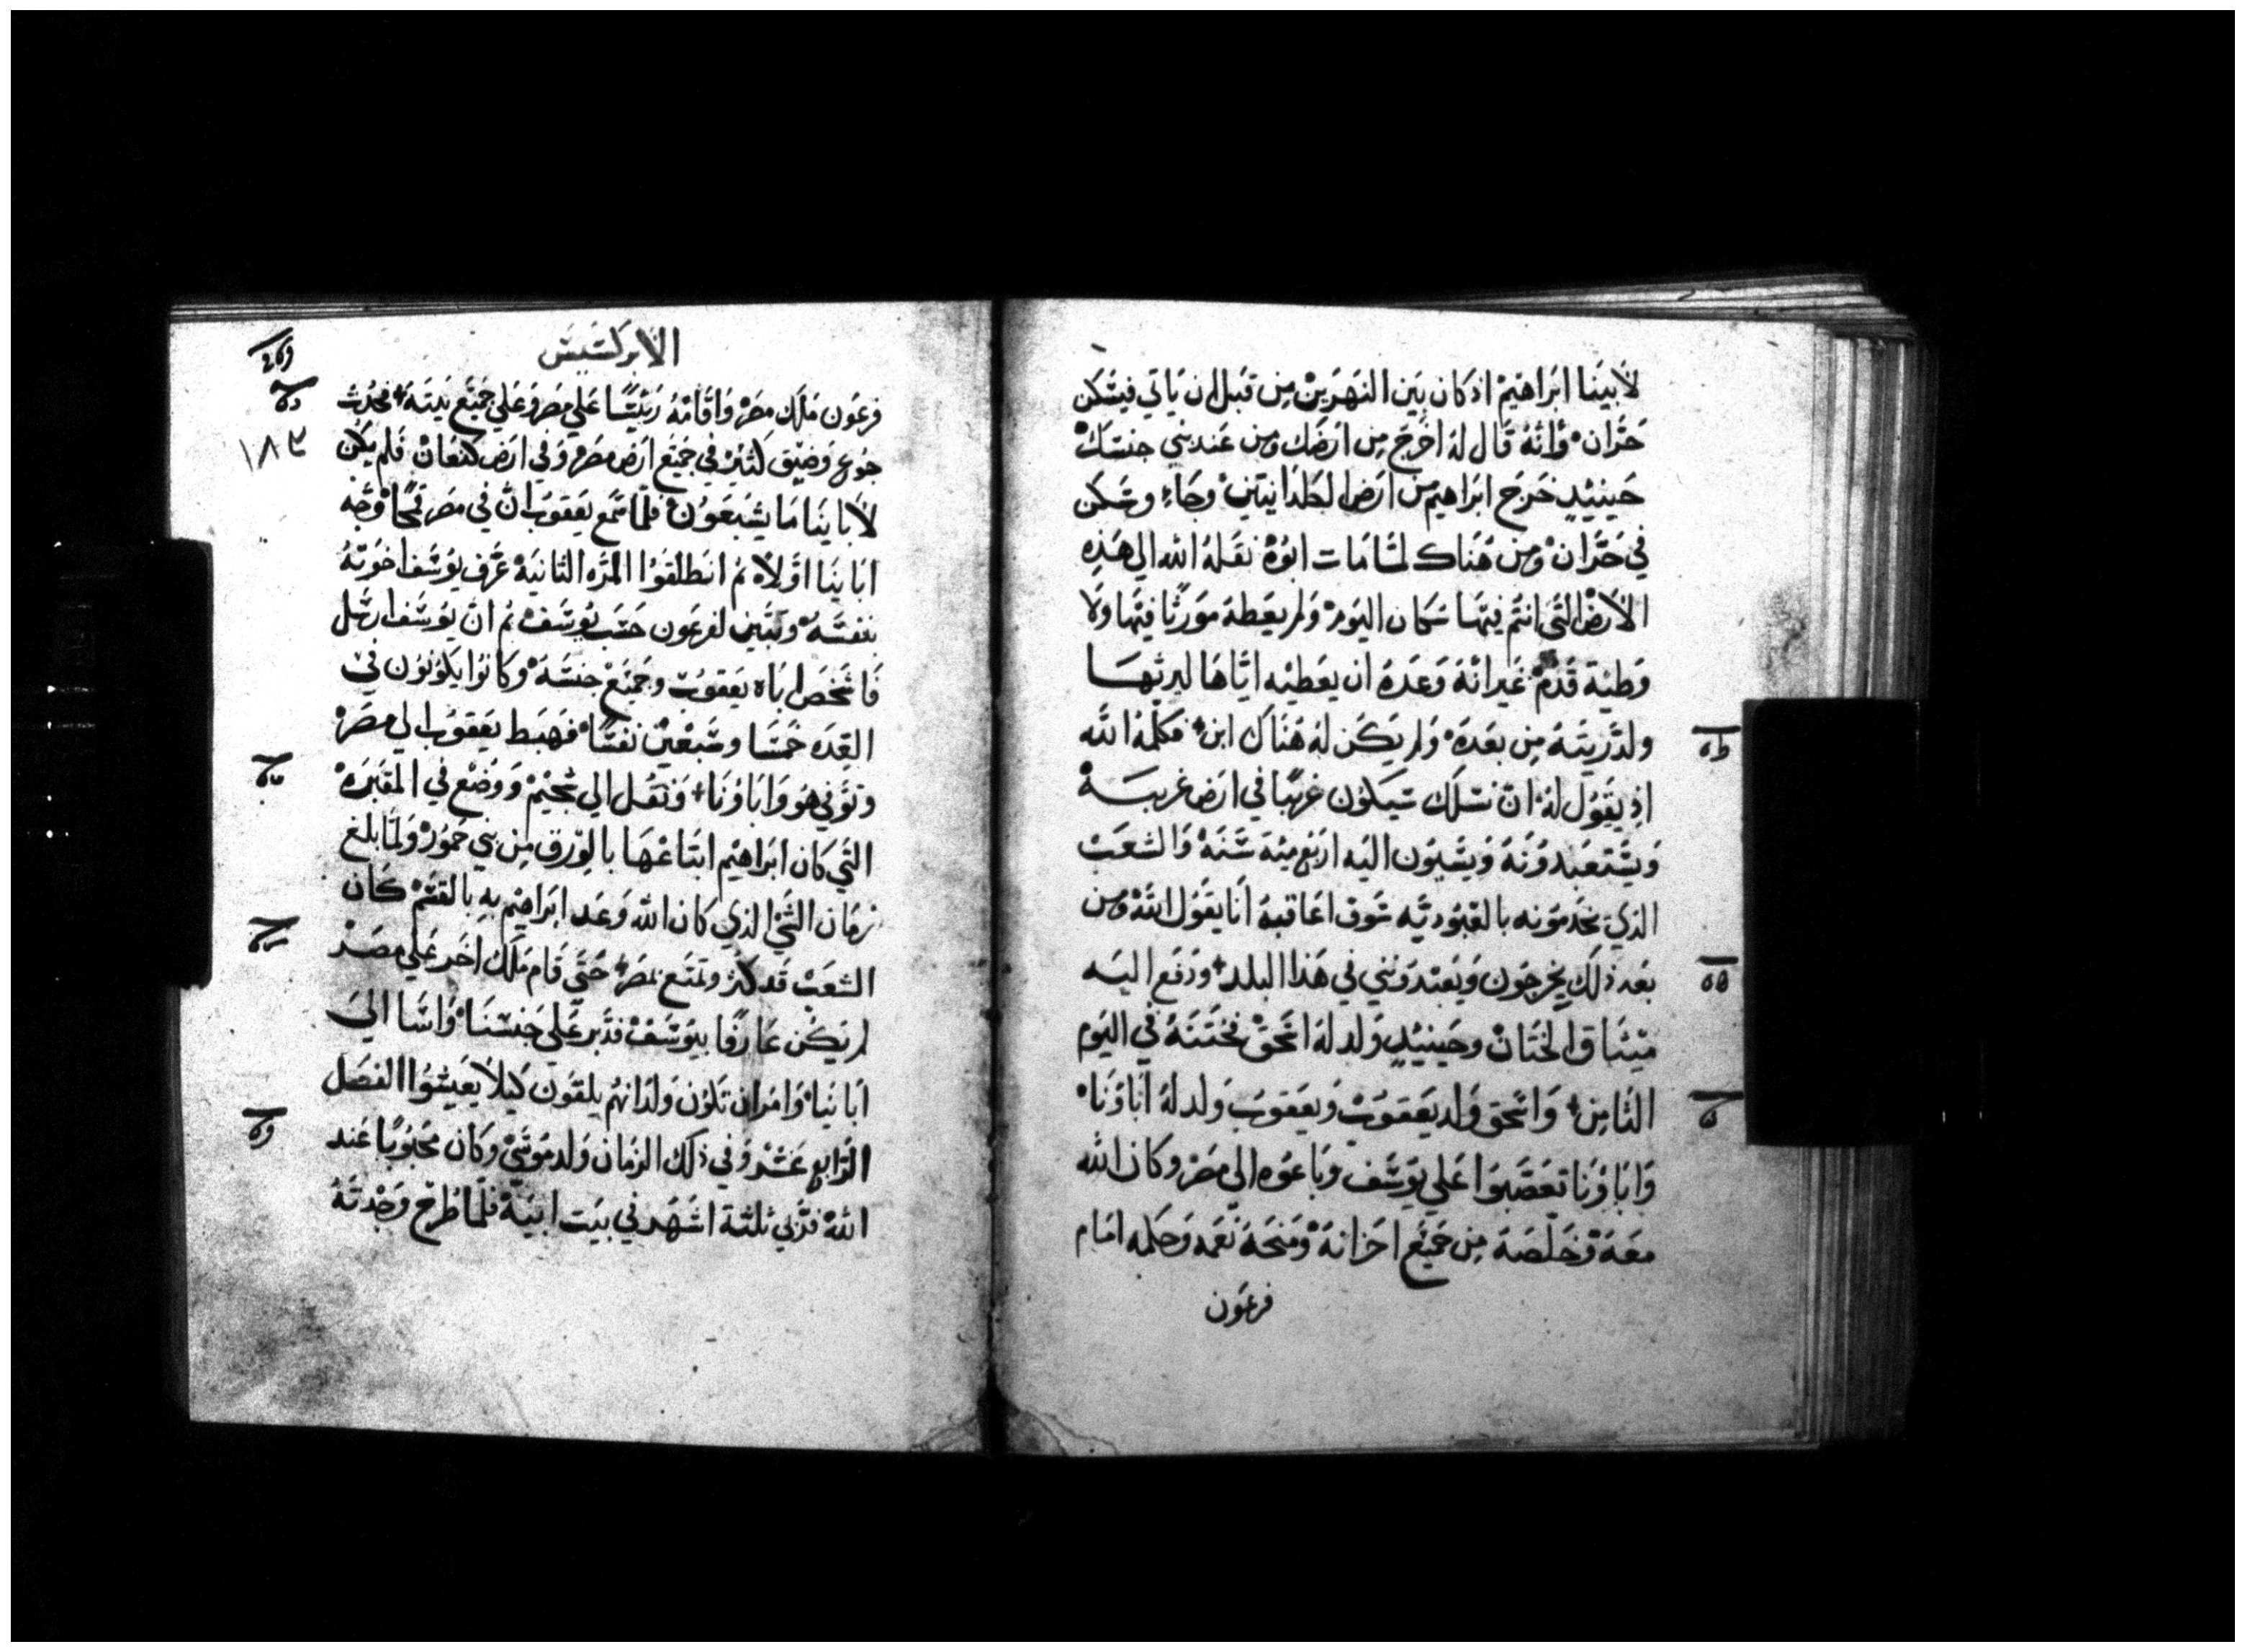 لأبينا ابراهيم اذ كان بين النهرين من قبل ان ياتي فيسكن
حران وانه قال له اخرج من ارضك ومن عند بني جنسك
حينيذ خرج ابراهيم من ارض الجلدانيين وجاء وسكن
في حران ومن هناك لما مات ابوه نقله الله الي هذه
الارض التي انتم فيها سكان اليوم ولم يعطه مورثا فيها ولا
وطية قدم غير انه وعده ان يعطيه اياها ليرثها
ولذريته من بعده ولم يكن له هناك ابن فكلمه الله
اذ يقول له ان نسلك سيكون غريبا في ارض غريبه
ويستعبدونه ويسيون اليه اربع ميه سنه والشعب
الذي يخدمونه بالعبوديه سوف اعاقبه انا يقول الله ومن
بعد ذلك يخرجون ويعبدونني في هذا البلد ودفع اليه
ميثاق الختان وحينيذ ولد له اسحق فختنه في اليوم
الثامن واسحق ولد يعقوب ويعقوب ولد له اباونا
واباونا تعصبوا علي يوسف وباعوه الي مصر وكان الله
معه وخلصه من جميع احزانه ومنحه نعمه وحكمه امام
فرعون
الابركسيس
فرعون ملك مصر واقامه رييسا علي مصر وعلي جميع بيته فحدث
١٨٣
جوع وضيق كثير في جميع ارض مصر وفي ارض كنعان فلم يكن
لابا ينا ما يشبعون فلما سمع يعقوب ان في مصر قمحا وجه
ابا ينا اولا ثم انطلقوا المره الثانية عرف يوسف اخوته
بنفسه وتبين لفرعون حسب يوسف ثم ان يوسف ارسل
فاشخص اباه يعقوب وجميع جنسه وكانوا يكونون في
العده خمسا وسبعين نفسا فهبط يعقوب الي مصر
وتوفي هو واباونا ونقل الي شخيم ووضع في المقبره
التي كان ابراهيم ابتاعها بالورق من بني حمور ولما بلغ
زمان الشي الذي كان الله وعد ابراهيم به بالقسم كان
الشعب قد كثر وتمتع بمصر حتي قام ملك اخر علي مصر
لم يكن عارفا بيوسف فدبر علي جنسنا واسا الي
ابا نيا وامر ان تكون ولدانهم يلقون كيلا يعيشوا الفصل
الرابع عشر وفي ذلك الزمان ولد موسي وكان محبوبا عند
الله فربي ثلثة اشهر في بيت ابيه فلما طرح وجدته